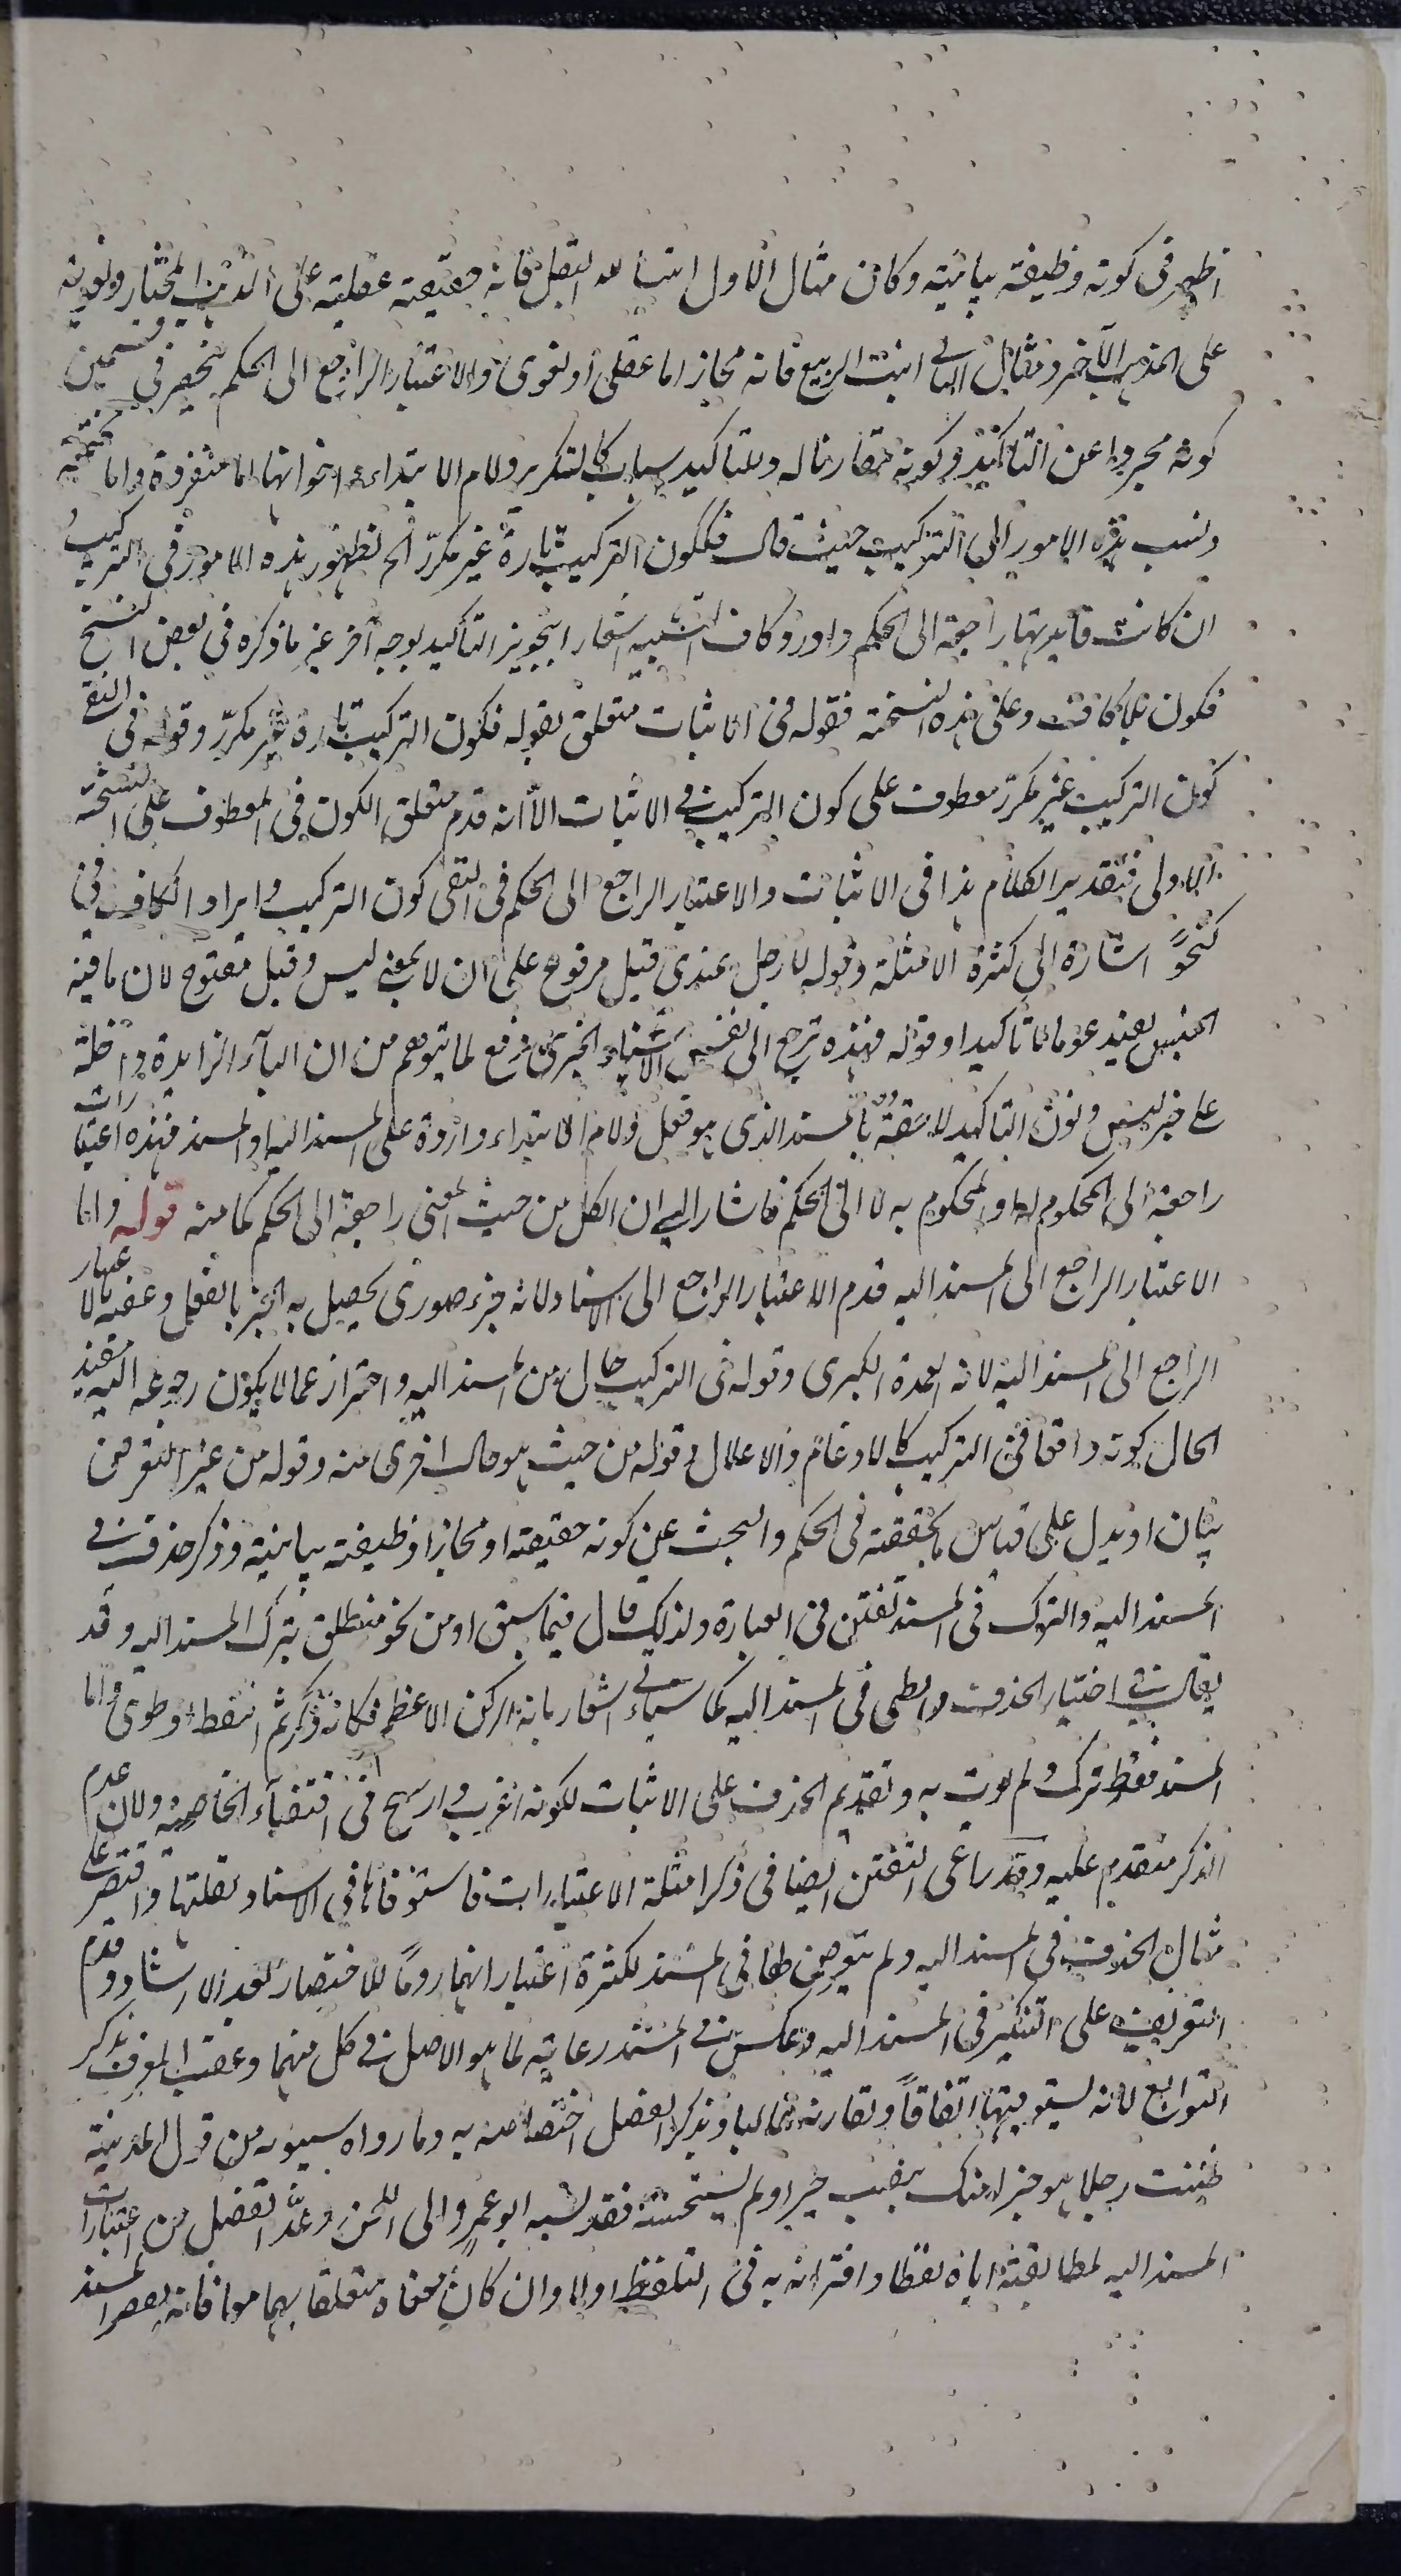 اظهر فى كونه وظيفة بيانية وكان مثال الاول انبت الله البقل فانه حقيقة عقلية على المذهب المختار ولغوية
على المذهب الآخر ومثال الثانى انبت الربيع فانه مجاز اما عقلى أو لغوى والاعتبار الراجع الى الحكم ينحصر فى قسمين
كونه مجردا عن التأكيد وكونه مقارنا له وللتاكيد اسباب كالتكرير ولام الابتداء واخواتها اما منفردة واما مجتمعة
ونسب هذه الامور الى التركيب حيث قال فككون التركيب تارة غير مكرّر الخ لظهور هذه الامور فى التركيب
ان كانت فايدتها راجعة الى الحكم واورد كاف التشبيه اشعارا بتجويز التاكيد بوجه آخر غير ما ذكره فى بعض النسخ
فكون بلا كاف وعلى هذه النسخة فقوله فى الاثبات متعلق بقوله فكون التركيب تارة غير مكرّر وقوله فى النفى
كون التركيب غير مكرّر معطوف على كون التركيب فى الاثبات الا انه قدم متعلق الكون فى المعطوف على النسخة
الاولى فتقدير الكلام هذا فى الاثبات والاعتبار الراجع الى الحكم فى النفى كون التركيب وايراد الكاف فى
كنحو اشارة الى كثرة الامثلة وقوله لا رجل عندى قيل مرفوع على ان لا بمعنى ليس وقيل مفتوح لان ما فيه
الجنس يفيد عموما لا تأكيدا وقوله فهذه ترجع الى نفس الاسناد الخبرى دفع لما يتوهم من ان الباء الزايدة داخلة
على خبر ليس ونون التاكيد لاحقة بالمسند الذى هو فعل ولام الابتداء واردة على المسند اليه او المسند فهذه اعتبارات
راجعة الى المحكوم له او المحكوم به لا الى الحكم فاشار الى ان الكل من حيث المعنى راجعة الى الحكم كما مر قوله واما
الاعتبار الراجع الى المسند اليه قدم الاعتبار الراجع الى الاسناد لانه جزء صورى يحصل به الخبر بالفعل وعقبه بالاعتبار
الراجع الى المسند اليه لانه العمدة الكبرى وقوله فى التركيب حال من المسند اليه واحتراز عما لا يكون رجوعه اليه مقيد
الحال كونه واقعا فى التركيب كالادغام والاعلال وقوله من حيث هو حال اخرى منه وقوله من غير التعرض
بيان او بدل على قياس ما حققته فى الحكم والبحث عن كونه حقيقة او مجازا وظيفة بيانية وذكر حذف فى
المسند اليه والترك فى المسند تفنن فى العبارة ولذلك قال فيما سبق او من نحو منطلق بترك المسند اليه وقد
يقال فى اختيار الحذف والطى فى المسند اليه كما سيأتى اشعار بانه الركن الاعظم فكانه ذكر ثم اسقط او طوى واما
المسند فقط ترك ولم يؤت به وتقديم الحذف على الاثبات لكونه اغرب وارسخ فى اقتضاء الخاصية ولان عدم
الذكر متقدم عليه وقد راعى التفنن ايضا فى ذكر امثلة الاعتبارات فاستوفاها فى الاسناد لقلتها واقتصر على
مثال الحذف فى المسند اليه ولم يتعرض لها فى المسند لكثرة اعتباراتهما روما للاختصار بعد الارشاد وقدم
التعريف على التنكير فى المسند اليه وعكس فى المسند رعاية لما هو الاصل فى كل منهما وعقب المعرف بذكر
التوابع لانه يستوجبها اتفاقاً وتقارنه غالبا وبذكر الفصل لاختصاصه به وما رواه سيبويه من قول المدنية
ظننت رجلا هو خيرا منك بنصب خيرا ولم يستحسنه فقد نسبه ابو عمرو الى اللحن وعدّ الفصل من اعتبارات
المسند اليه لمطابقته اياه لفظا واقترانه به فى التلفظ اولا وان كان معناه متعلقا بهما معا فانه لقصر المسند